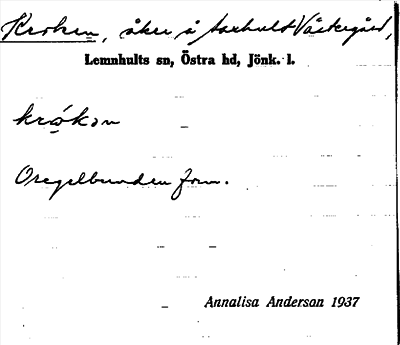 Kroken, åker å Boxhult Västergård,
Lemnhults sn, Östra hd, Jönk. l.
krókən
Oregelbunden form.
Annalisa Anderson 1937